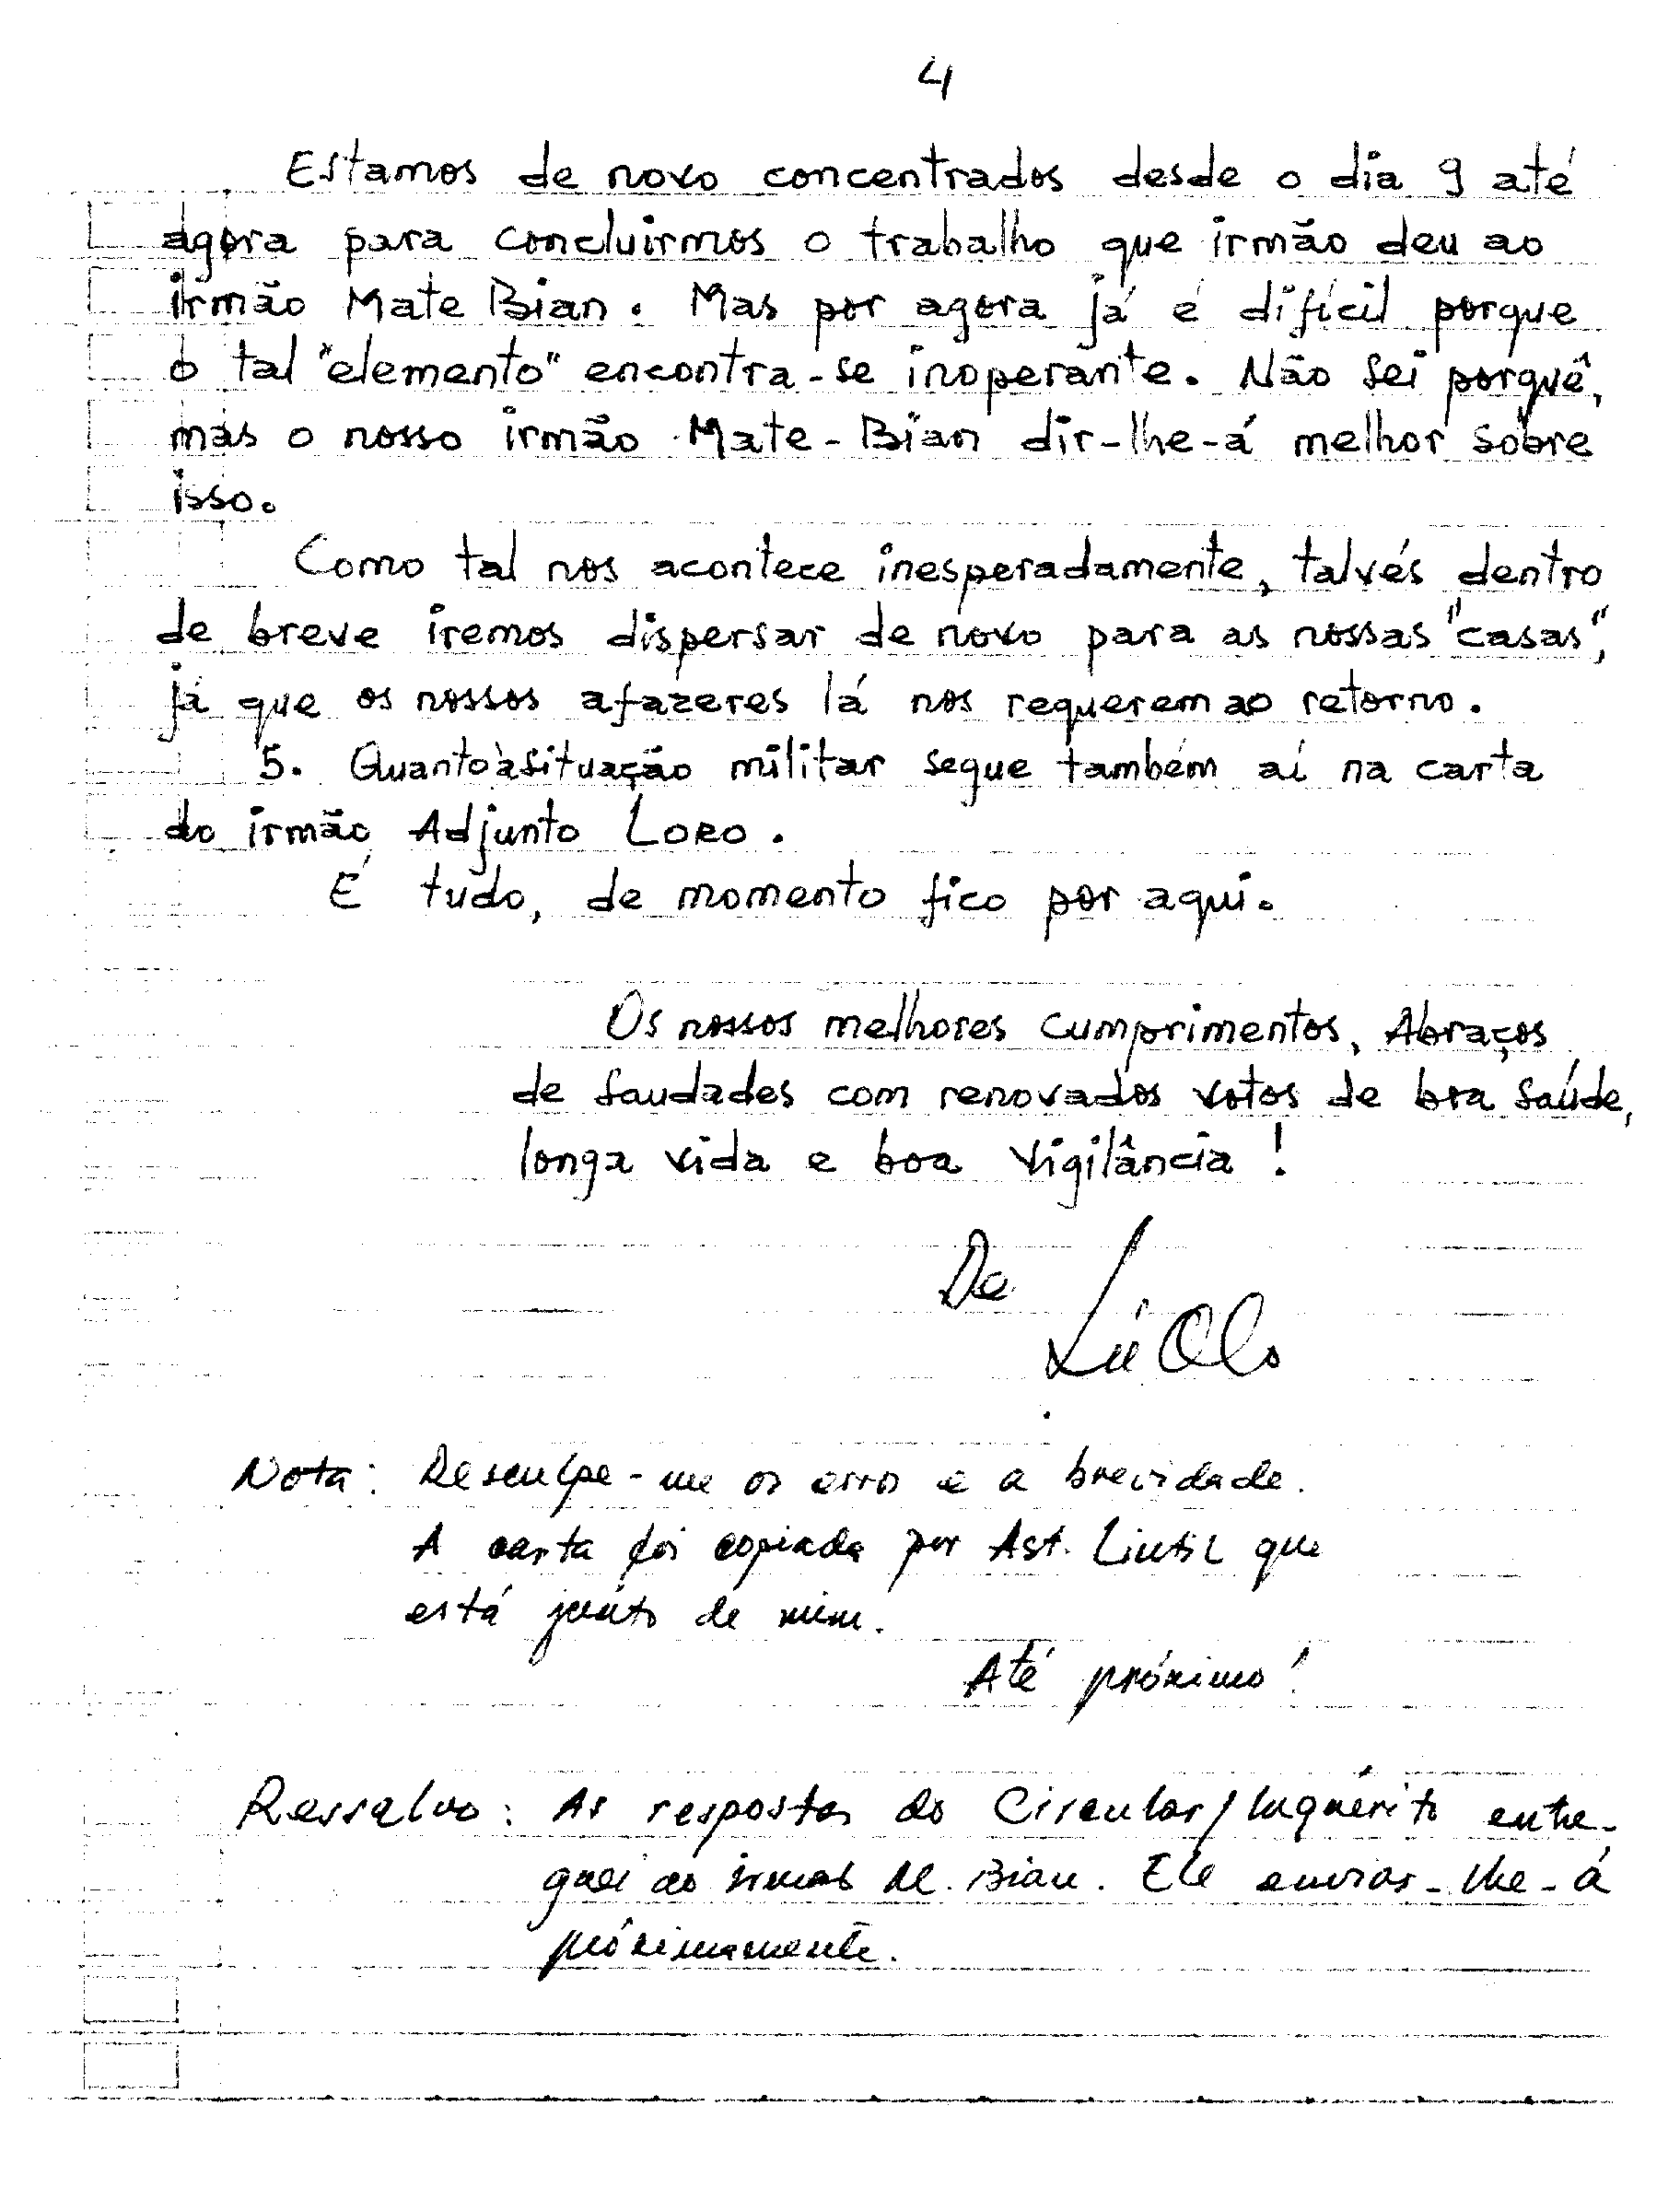 4
Estamos de novo concentrados desde o dia 9 até
agora para concluirmos o trabalho que irmão deu ao
irmão Mate Bian. Mas por agora já é difícil porque
o tal "elemento" encontra-se inoperante. Não sei porquê,
mas o nosso irmão Mate-Bian dir-lhe-á melhor sobre
isso.
Como tal nos acontece inesperadamente, talvés dentro
de breve iremos dispersar de novo para as nossas "casas",
já que os nossos afazeres lá nos requerem ao retorno.
5. Quanto à situação militar segue também aí na carta
do irmão Adjunto LORO.
É tudo, de momento fico por aqui.
Os nossos melhores cumprimentos, Abraços
de saudades com renovados votos de boa saúde,
longa vida e boa vigilância!
De
Nota: Desculpe-me os erros e a brevidade.
A carta foi copiada por Ast. que
está junto de mim.
Até próximo!
Ressalvo: As respostas do Circular/Inquérito entre-
guei ao irmão M. Bian. Ele enviar-lhe-á
próximamente.